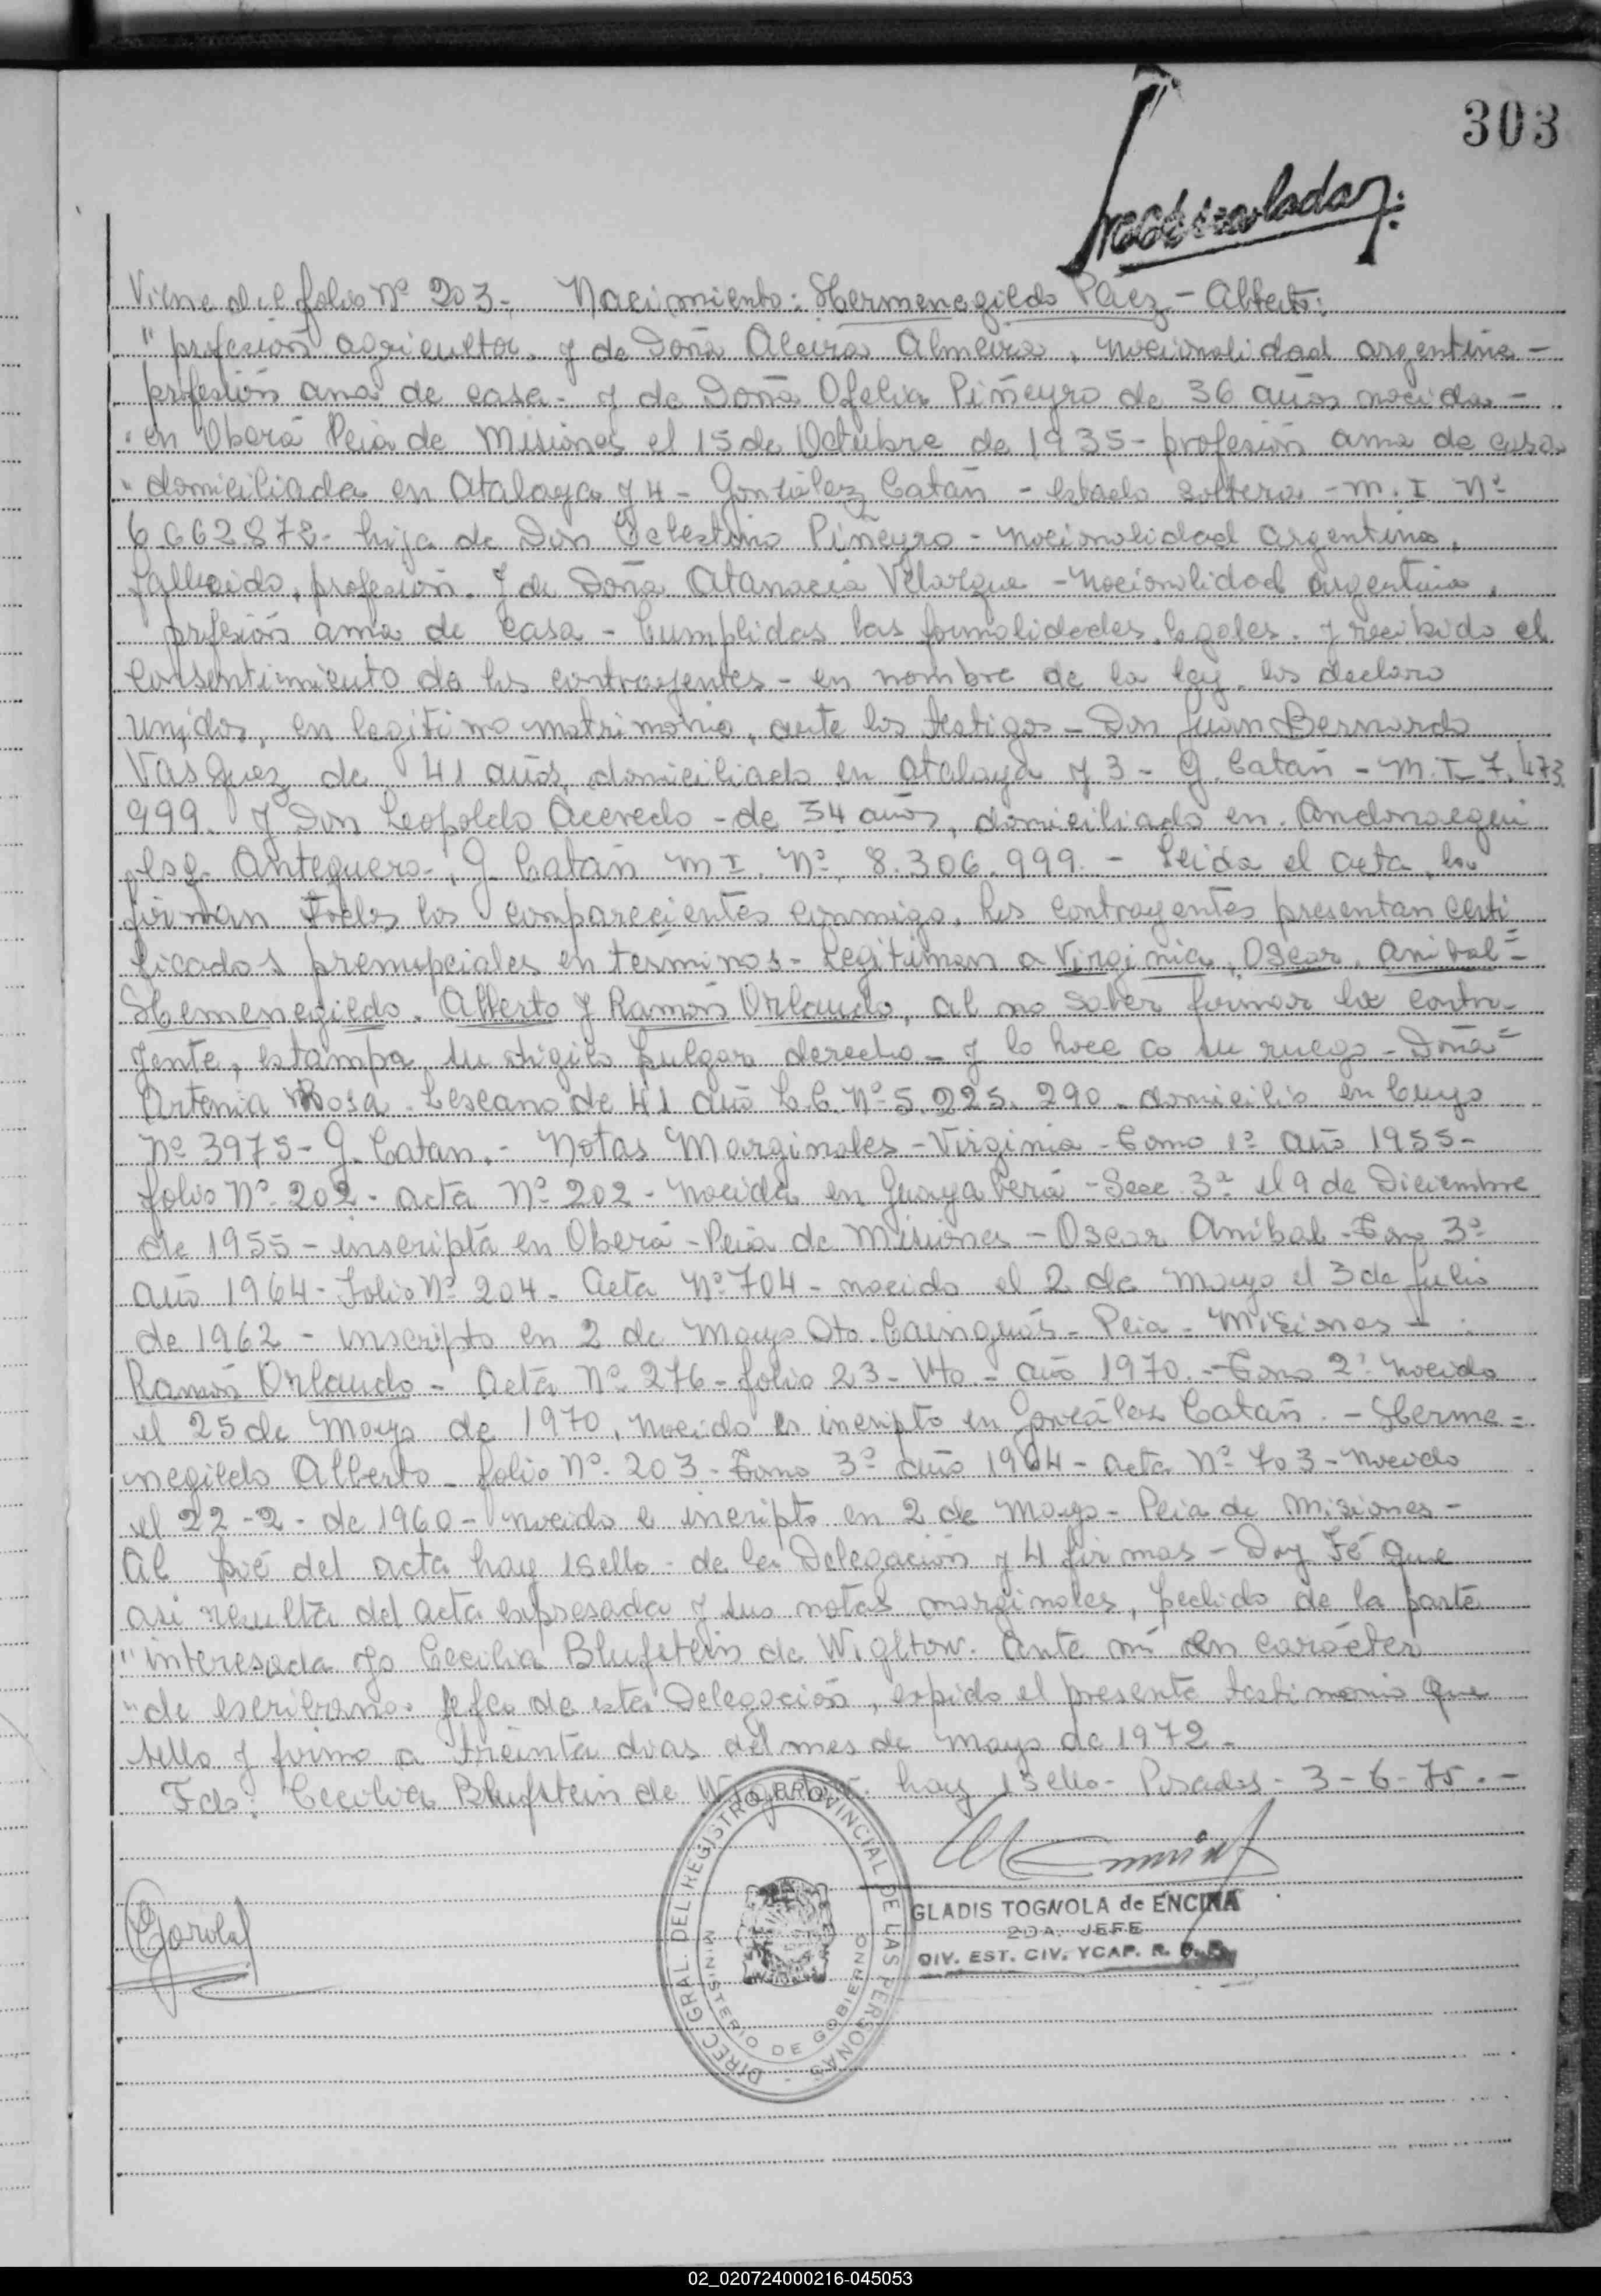 303
Viene del folio Nº 203.- Nacimiento: Hermenegildo Páez - Alberto:
" profesión agricultor. y de Doña Alcira Almeira, nacionalidad argentina -
profesión ama de casa - y de Doña Ofelia Piñeyro de 36 años nacida -
" en Oberá Pcia de Misiones el 15 de Octubre de 1935 - profesión ama de casa
" domiciliada en Atalaya y 4 - González Catán - estado soltera - M. I Nº
6.662.872 - hija de Don Celestino Piñeyro - nacionalidad argentina,
fallecido, profesión. y de Doña Atanacia - nacionalidad argentina,
profesión ama de casa - Cumplidas las formalidades legales. y recibido el
consentimiento de los contrayentes - en nombre de la ley. los declaro
unidos, en legitimo matrimonio, ante los testigos - Don Juan Bernardo
Vasquez de 41 años, domiciliado en Atalaya y 3 - G. Catán - M. I. 7.473.
999. y Don Leopoldo Acevedo - de 34 años, domiciliado en. Andonaegui
esq. Antequera -, G. Catán M I. Nº 8.306.999. - Leida el acta, la
firman todos los comparecientes conmigo. los contrayentes presentan certi
ficados prenupciales en terminos - Legitiman a Virginia, Oscar, Anibal =
Hemenegildo. Alberto y Ramón Orlando, al no saber firmar la contra-
yente, estampa su digito pulgar derecho - y lo hace a su ruego - Doña =
Artenia Rosa. Lescano de 41 año L.C. Nº 5.225.290. domicilio en Cuyo
Nº 3975 - G. Catan. - Notas Marginales - Virginia - Tomo 1º año 1955 -
folio Nº 202 - acta Nº 202 - Nacida en Guayaberá - Secc. 3ª el 9 de Diciembre
de 1955 - inscripta en Oberá - Pcia de Misiones - Oscar Anibal - Tomo 3º
año 1964 - Folio Nº 204 - Acta Nº 704 - nacido el 2 de Mayo el 3 de Julio
de 1962 - inscripto en 2 de Mayo Dto. Cainguás - Pcia - Misiones -
Ramón Orlando - Acta Nº 276 - folio 23 - Vto - año 1970. - Tomo 2º Nacido
el 25 de Mayo de 1970, nacido es incripto en González Catán. - Herme =
negildo Alberto - folio Nº 203 - Tomo 3º año 1964 - acta Nº 703 - nacido
el 22-2- de 1960 - nacido e incripto en 2 de Mayo - Pcia de Misiones -
Al pié del acta hay 1 sello - de la Delegación y 4 firmas - Doy Fé que
asi resulta del acta expresada y sus notas marginales, pedido de la parte
" interesada yo Cecilia Blufstein de Wigltow. Ante mi en carácter
" de escribano. Jefe de esta Delegación, expido el presente testimonio que
sello y firmo a treinta dias del mes de Mayo de 1972 -
Fdo: Cecilia Blufstein de hay 1 sello - Posadas - 3-6-75. -
DIREC. GRAL. DEL REGISTRO PROVINCIAL DE LAS PERSONAS
MINISTERIO DE GOBIERNO
GLADIS TOGNOLA de ENCINA
2DA. JEFE
DIV. EST. CIV. YCAP. R. P. P.
02_020724000216-045053